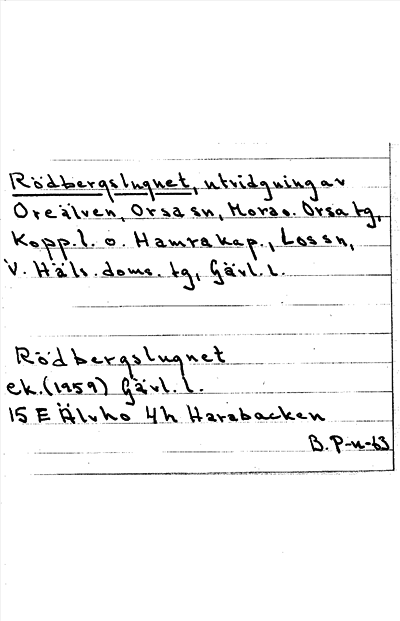 Rödbergslugnet, utvidgning av
Oreälven, Orsa sn, Mora o. Orsa tg,
Kopp. l. o. Hamra kap., Los sn,
V. Häls. doms. tg, Gävl. l.
Rödbergslugnet
ek. (1959) Gävl. l.
15 E Älvho 4h Harabacken
B. P-n-63